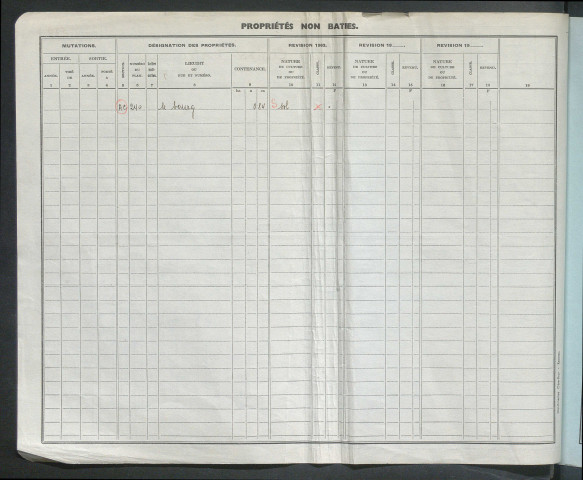 PROPRIÉTÉS NON BATIES.
MUTATIONS. DÉSIGNATION DES PROPRIÉTÉS. REVISION 19 REVISION 19
ENTRÉE. SORTIE. SECTION. NUMÉRO DU PLAN. LIEUDIT OU RUE ET NUMÉRO. CONTENANCE. NATURE DE CULTURE OU DE PROPRIÉTÉ. CLASSE. REVENU. NATURE DE CULTURE OU DE PROPRIÉTÉ. CLASSE. REVENU. NATURE DE CULTURE OU DE PROPRIÉTÉ. CLASSE. REVENU.
ANNÉE. TIRÉ DE ANNÉE. PORTÉ À
1 2 3 4 5 6 7 8 9 10 11 12 13 14 15 16 17 18 19
ha a ca
240 le bourg sol